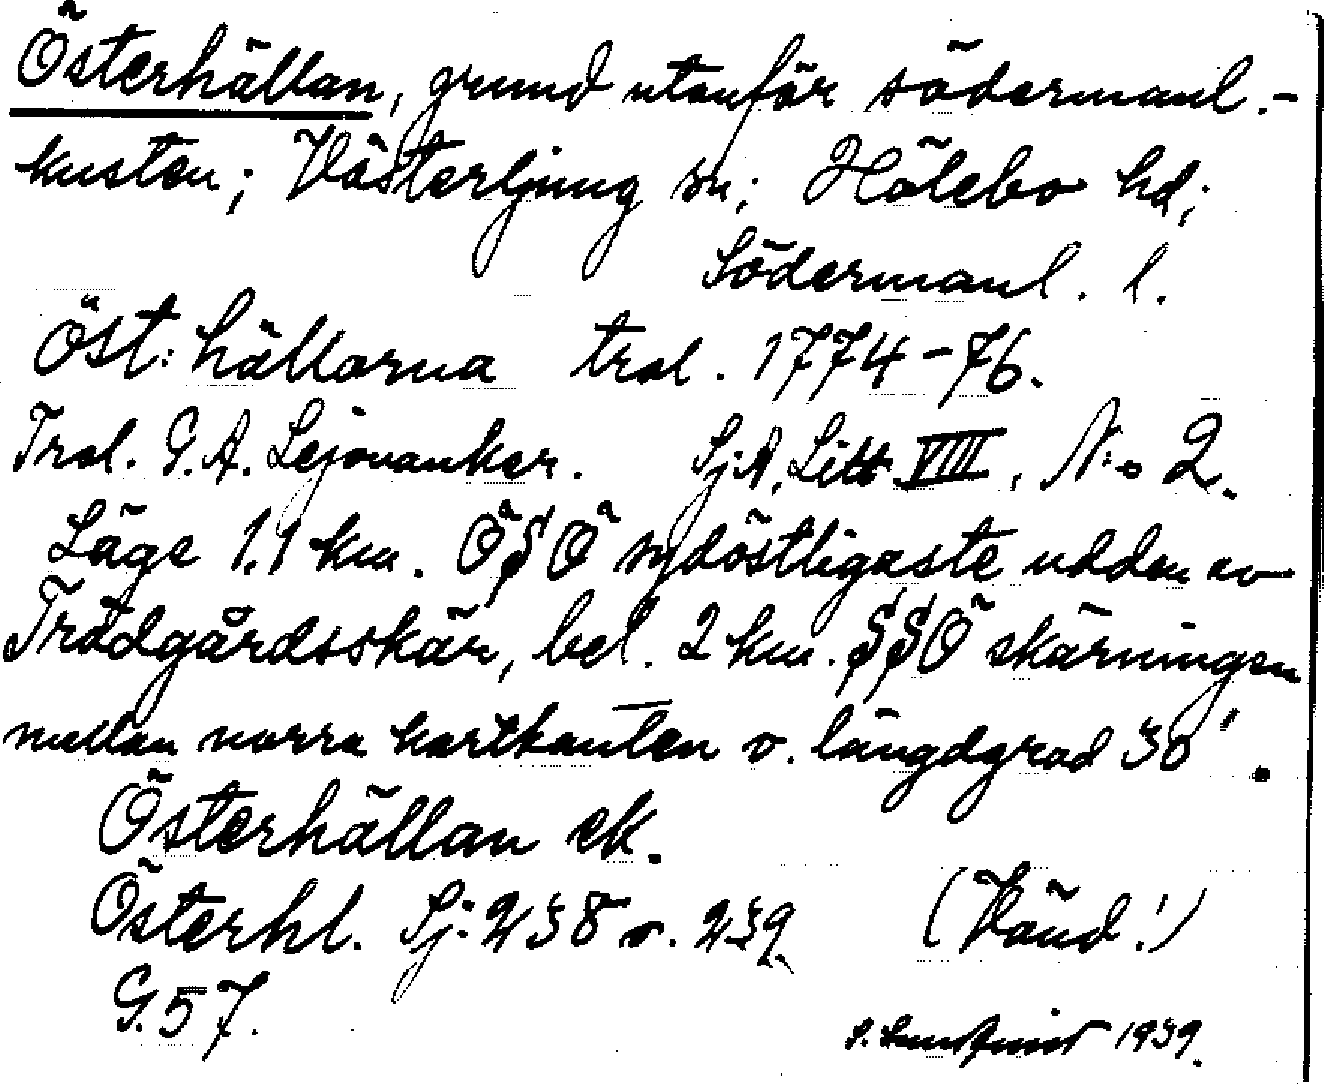 Österhällan, grund utanför södermanl.-
kusten; Västerljung sn; Hölebo hd;
Södermanl. l.
Öst: hällarna trol. 1774-76.
Trol. G.A. Lejonanker. Sj.A. Litt. VIII, N:o 2.
Läge 1.1 km. Ö§Ö sydöstligaste udden av
Trädgårdsskär, bel. 2 km. §§Ö skärningen
mellan norra kartkanten o. längdgrad 30'.
Österhällan ek.
Österhl. Sj: 238 o. 239
(Vänd!)
G. 57.
1939.